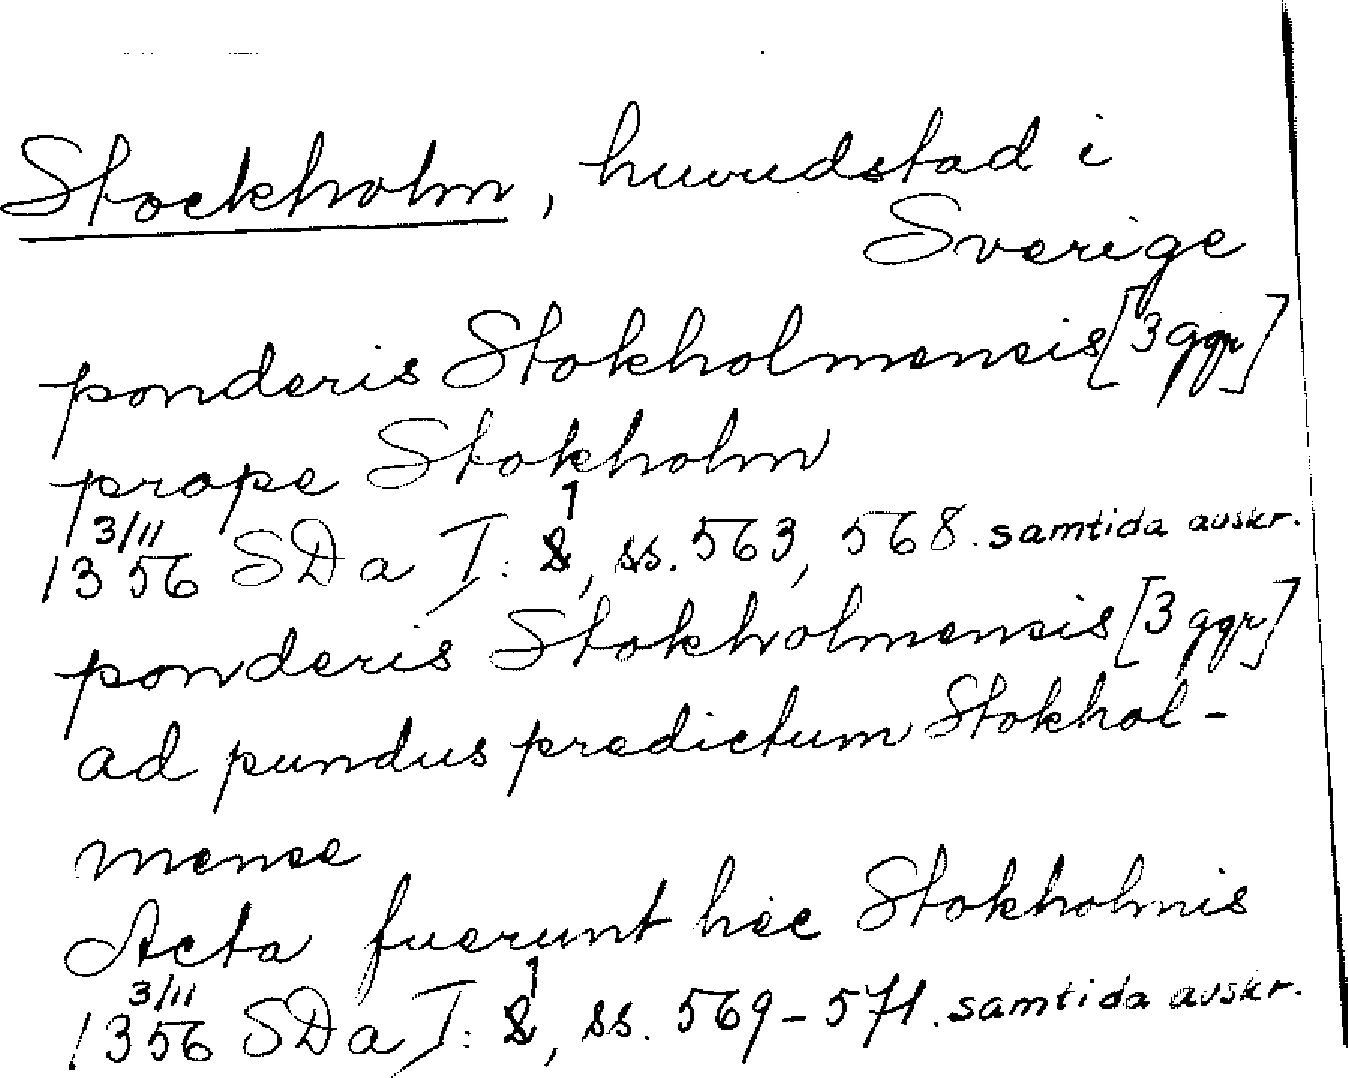 Stockholm, huvudstad i
Sverige
ponderis Stokholmensis [3 ggr]
prope Stokholm
3/11 1
1356 SDa I: 8, ss. 563, 568. samtida avskr.
ponderis Stokholmensis [3 ggr]
ad pundus predictum Stokhol-
mense
Acta fuerunt hec Stokholmis
3/11 1
1356 SDa I: 8, ss. 569-571. samtida avskr.